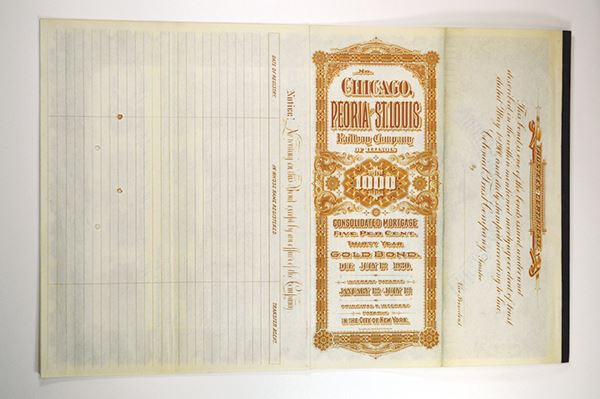 DATE OF REGISTRY.
IN WHOSE NAME REGISTERED.
TRANSFER AGENT.
Notice: No writing on this Bond except by an officer of the Company.
No.
CHICAGO,
PEORIA AND ST. LOUIS
Railway Company
OF ILLINOIS
1000
CONSOLIDATED MORTGAGE
FIVE PER CENT.
THIRTY YEAR
GOLD BOND.
DUE JULY 1ST 1930.
INTEREST PAYABLE
JANUARY 1ST JULY 1ST
PRINCIPAL & INTEREST
PAYABLE
IN THE CITY OF NEW YORK.
TRUSTEE'S CERTIFICATE.
This is one of the bonds issued under and
described in the within mentioned mortgage or deed of trust
dated May and duly stamped according to law.
Colonial Trust Company, Trustee
By
Vice President.